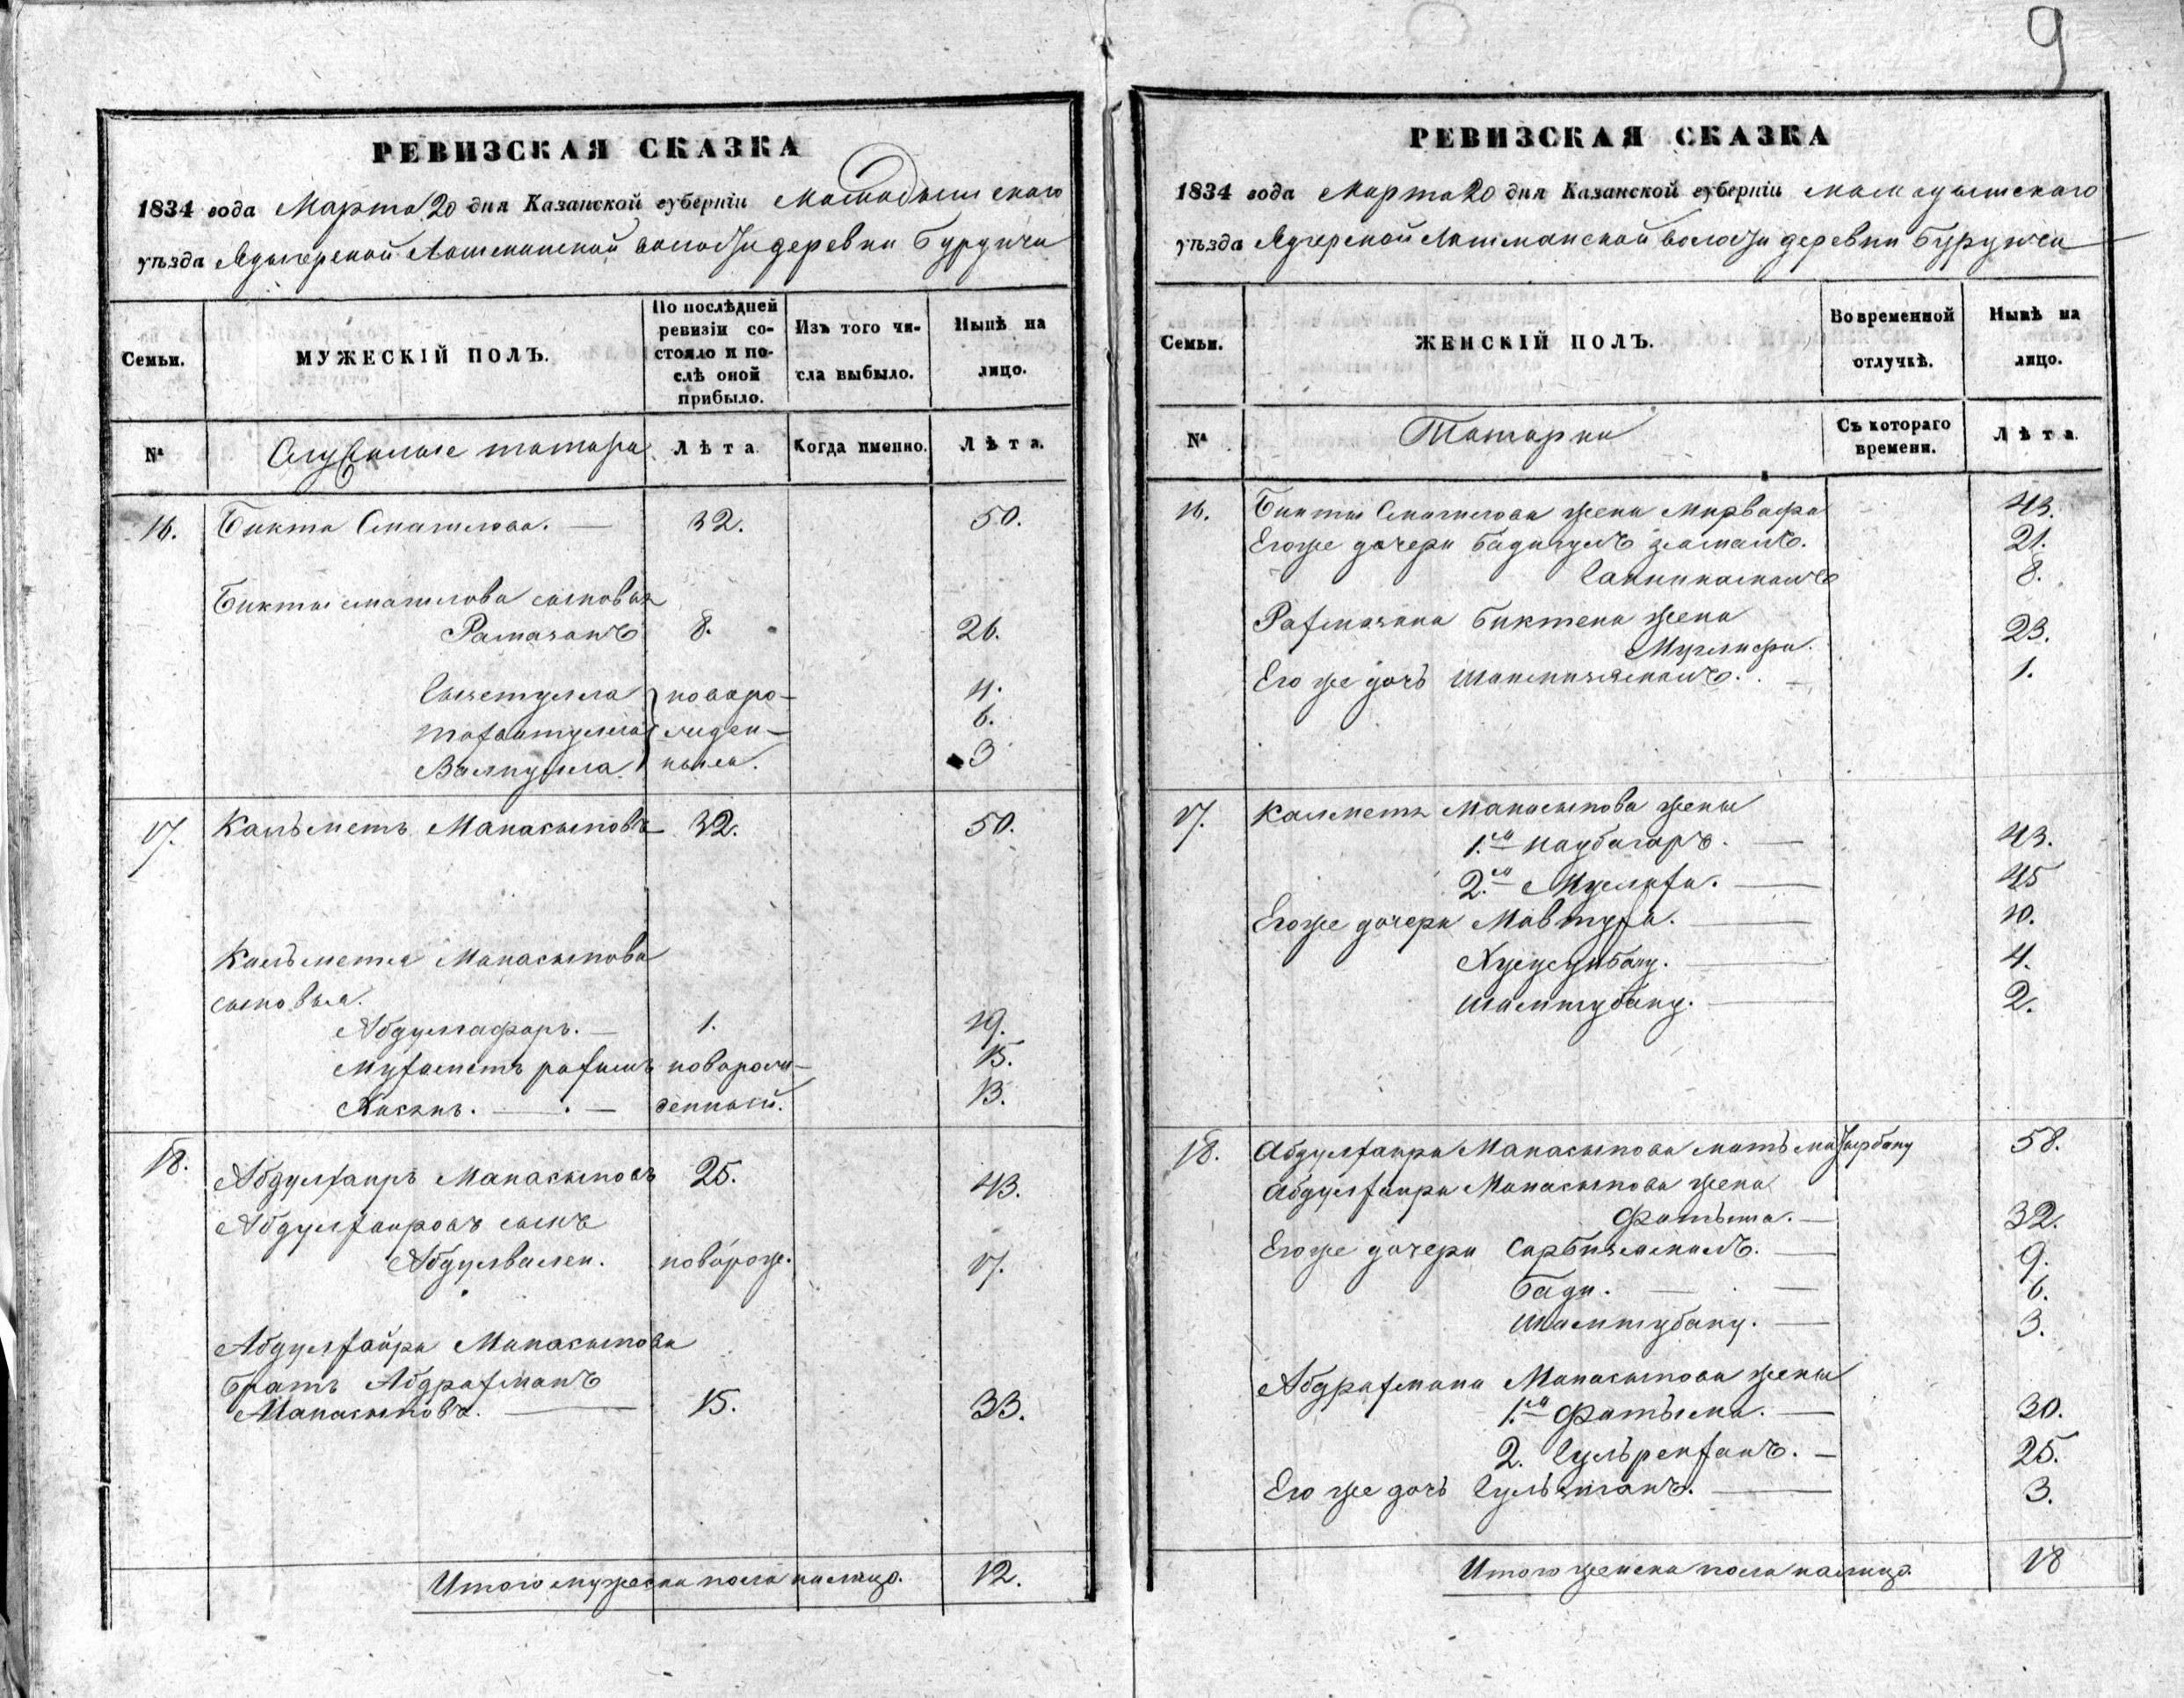 9
РЕВИЗСКАЯ СКАЗКА
1834 года Марта 20 дня Казанской губерніи Мамадышскаго
уѣзда Лашманской волости деревни Бурунчи
Семьи.
МУЖЕСКІЙ ПОЛЪ.
По послѣдней ревизіи состояло и послѣ оной прибыло.
Изъ того числа выбыло.
Нынѣ на лицо.
№
Служилые татара
Лѣта.
Когда именно.
Лѣта.
16. Бикта Смагилова. — 32. 50.
Бикты Смагилова сыновья
Рамазанъ 8. 26.
новоро-
4.
жден- 6.
Валиулла ные. 3
17. Кальметь Манасыповъ 32. 50.
Кальметя Манасыпова
сыновья.
Абдулгафаръ. — 1. 19.
Мухаметъ рахимъ новорож- 15.
Хасянъ. — денный. 13.
18. Абдулхаиръ Манасыповъ 25. 43.
Абдулхаировъ сынъ
Абдулвали. новорож. 17.
Абдулхаира Манасыпова
братъ Абдрахманъ
Манасыповъ. — 15. 33.
Итого мужеска пола налицо. 12.
РЕВИЗСКАЯ СКАЗКА
1834 года Марта 20 дня Казанской губерніи Мамадышскаго
уѣзда Лашманской волости деревни Бурунчи
Семьи.
ЖЕНСКІЙ ПОЛЪ.
Во временной отлучкѣ.
Нынѣ на лицо.
№
Татарки
Съ котораго времени.
Лѣта.
16. Бикты Смагилова жена 43.
Егоже дочери Бадигулъ земалъ. 21.
8.
Рахмазана Биктена жена
23.
Его же дочь 1.
17. Калметя Манасыпова жены
1.ая Наубагаръ. — 43.
2.ая — 45
Егоже дочери Мавтуха. — 10.
4.
Шамшубану. — 2.
18. Абдулхаира Манасыпова мать 58.
Абдулхаира Манасыпова жена
Фатыма. — 32.
Егоже дочери — 9.
Бади. — 6.
Шамшубану. — 3.
Абдрахмана Манасыпова жены
1.ая Фатыма. — 30.
2. Гульрейханъ. — 25.
Его же дочь — 3.
Итого женска пола налицо. 18